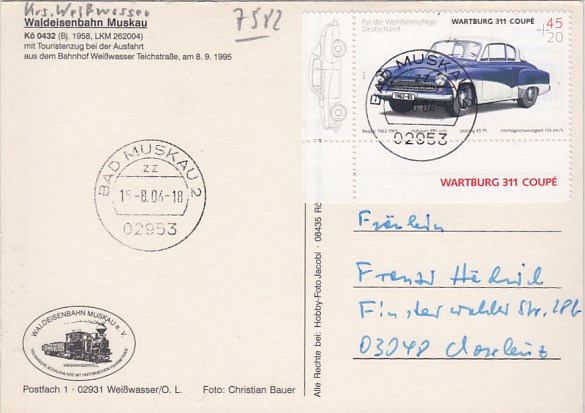 Krs. Weißwasser
7582
Waldeisenbahn Muskau
Kö 0432 (Bj. 1958, LKM 262004)
mit Touristenzug bei der Ausfahrt
aus dem Bahnhof Weißwasser Teichstraße, am 8. 9. 1995
Für die Wohlfahrtspflege
Deutschland
WARTBURG 311 COUPÉ
45
+20
BAD MUSKAU
zz
02953
Höchstgeschwindigkeit 125 km/h
WARTBURG 311 COUPÉ
BAD MUSKAU 2
zz
15-8.04-18
02953
Fräulein
Finsterwalder Str.
03048
WALDEISENBAHN MUSKAU e.V.
WEISSWASSER/O.L.
Postfach 1 · 02931 Weißwasser/O. L.
Foto: Christian Bauer
Alle Rechte bei: Hobby-Foto Jacobi · 08435